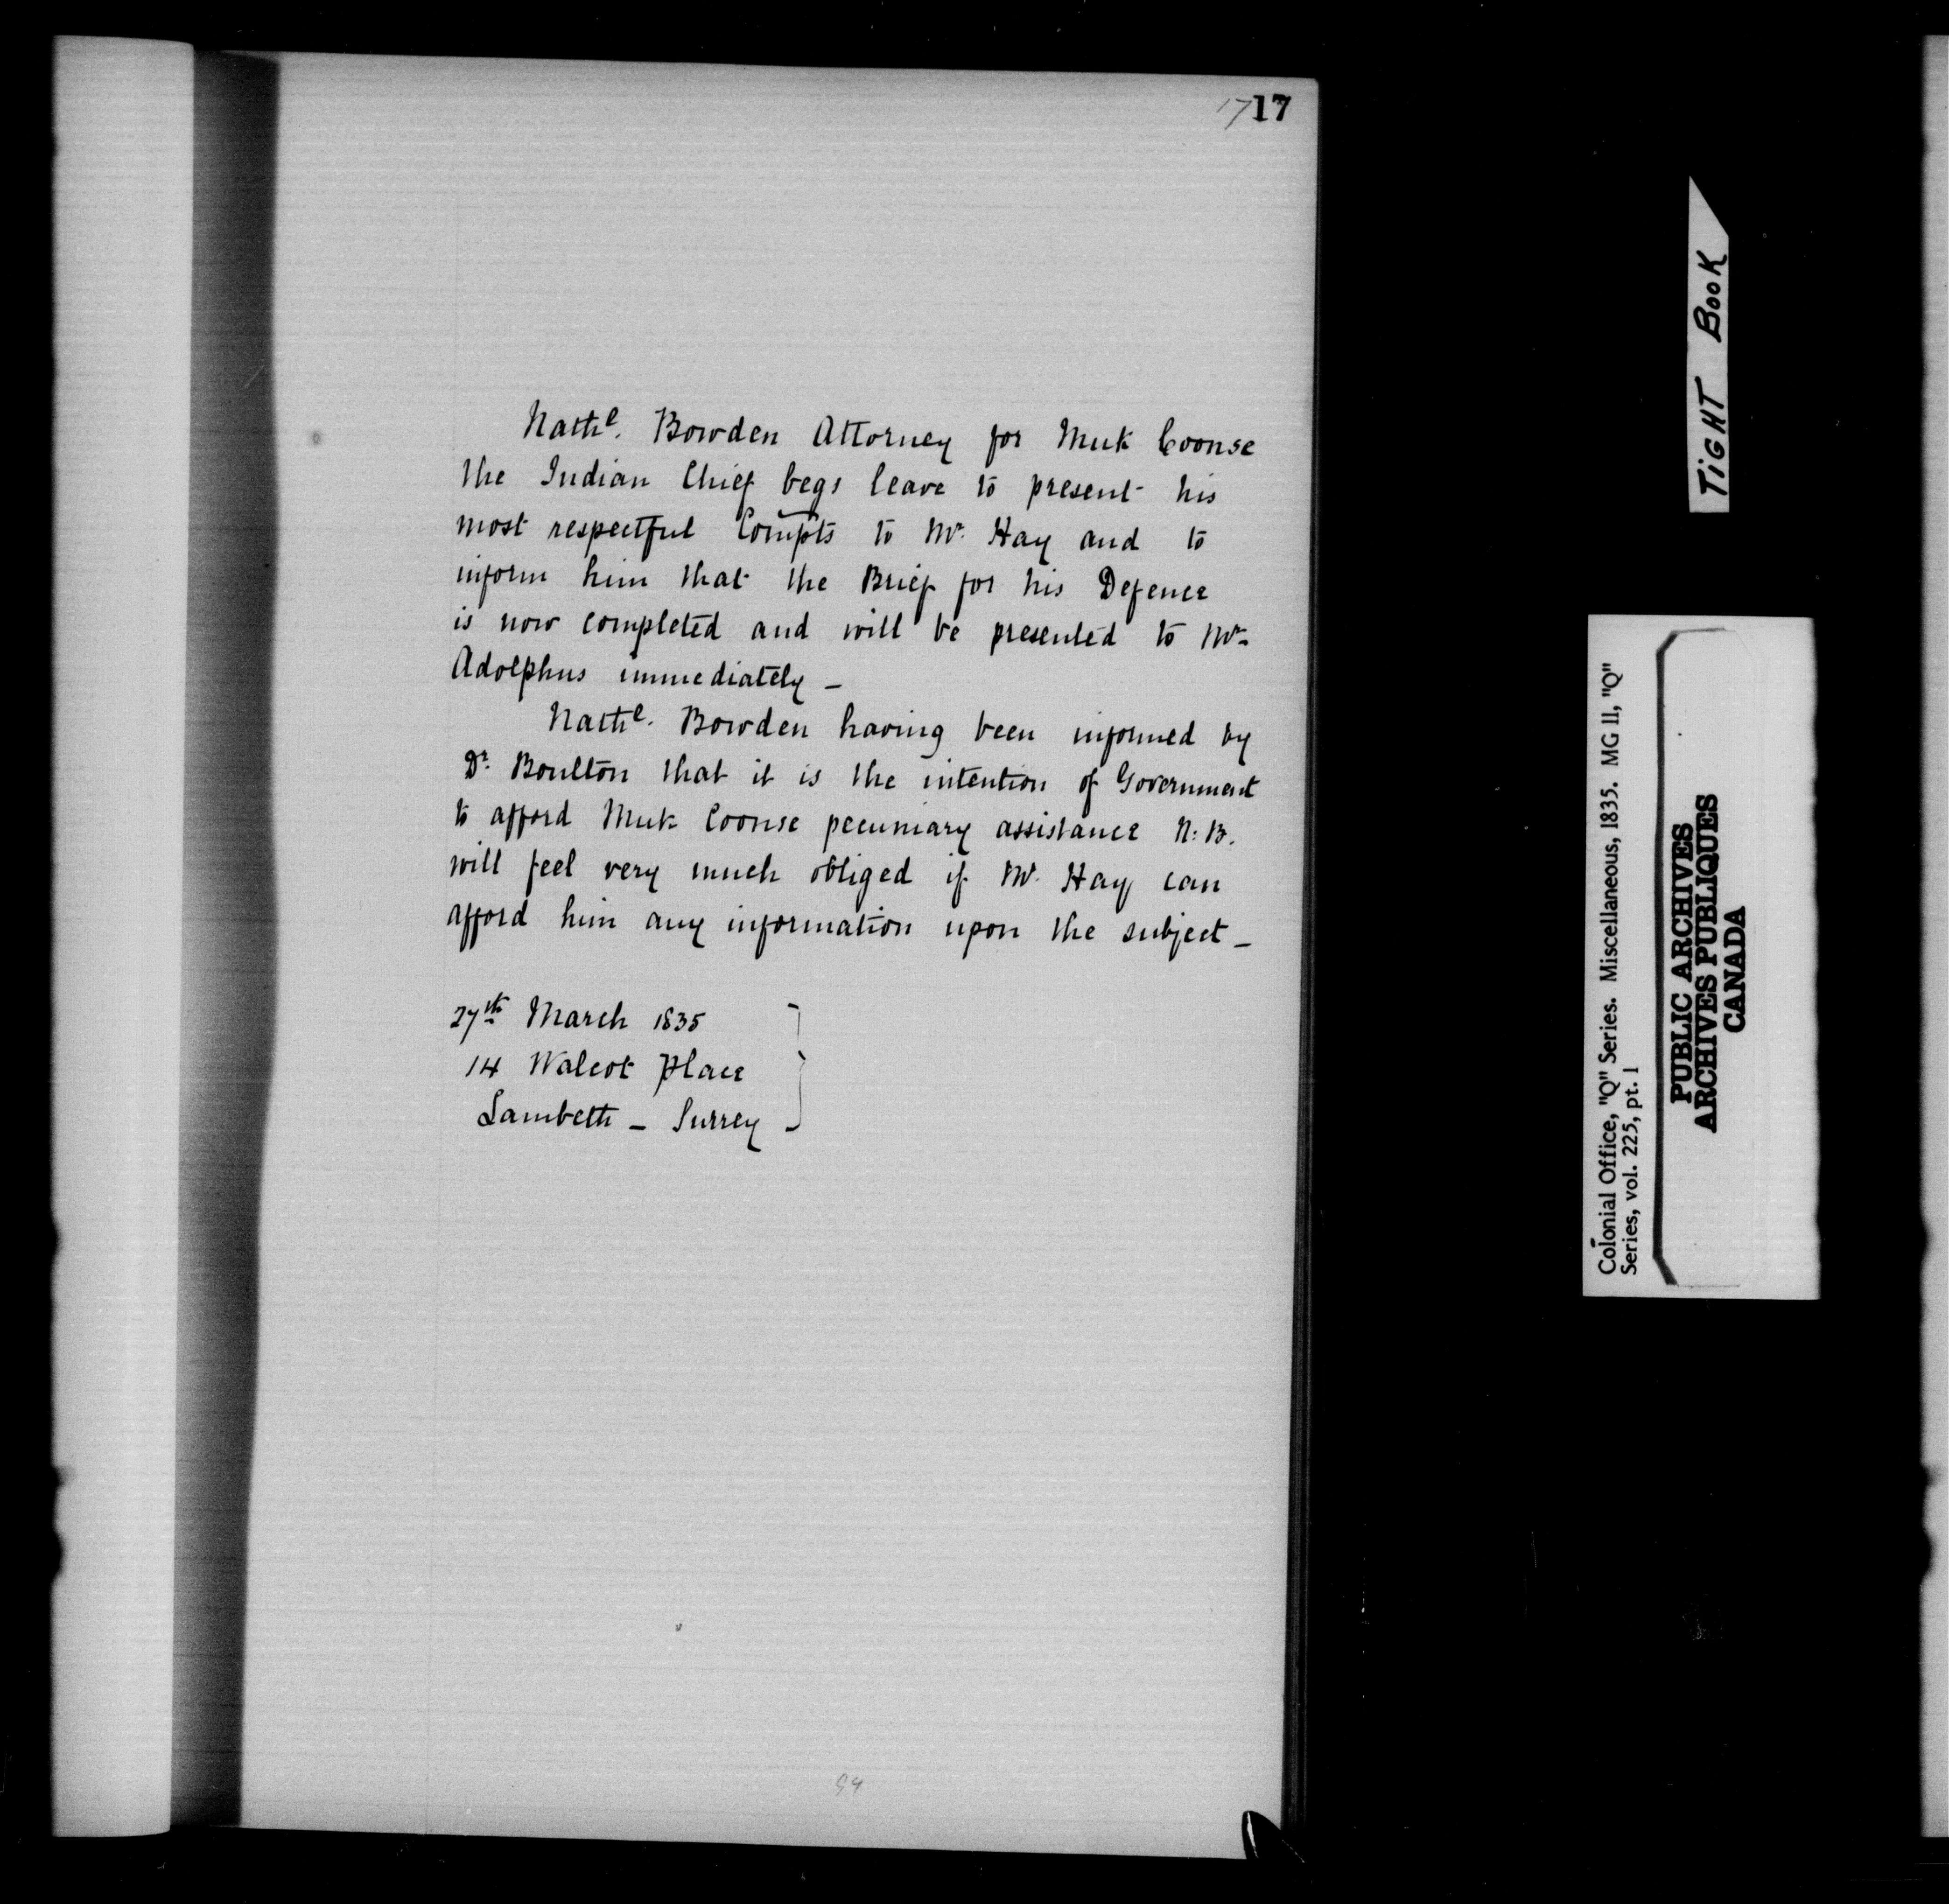 17 17
Nathl. Bowden Attorney for Muk Coonse
the Indian Chief begs leave to present his
most respectful Compts to Mr. Hay and to
inform him that the Brief for his Defence
is now completed and will be presented to Mr.
Adolphus immediately _
Nathl. Bowden having been informed by
Dr. Boulton that it is the intention of Government
to afford Muk Coonse pecuniary assistance N: B.
will feel very much obliged if Mr. Hay can
afford him any information upon the subject _
27th March 1835
14 Walcot Place
Lambeth _ Surrey
TIGHT BOOK
Colonial Office, "Q" Series. Miscellaneous, 1835. MG 11, "Q"
Series, vol. 225, pt. 1
PUBLIC ARCHIVES
ARCHIVES PUBLIQUES
CANADA